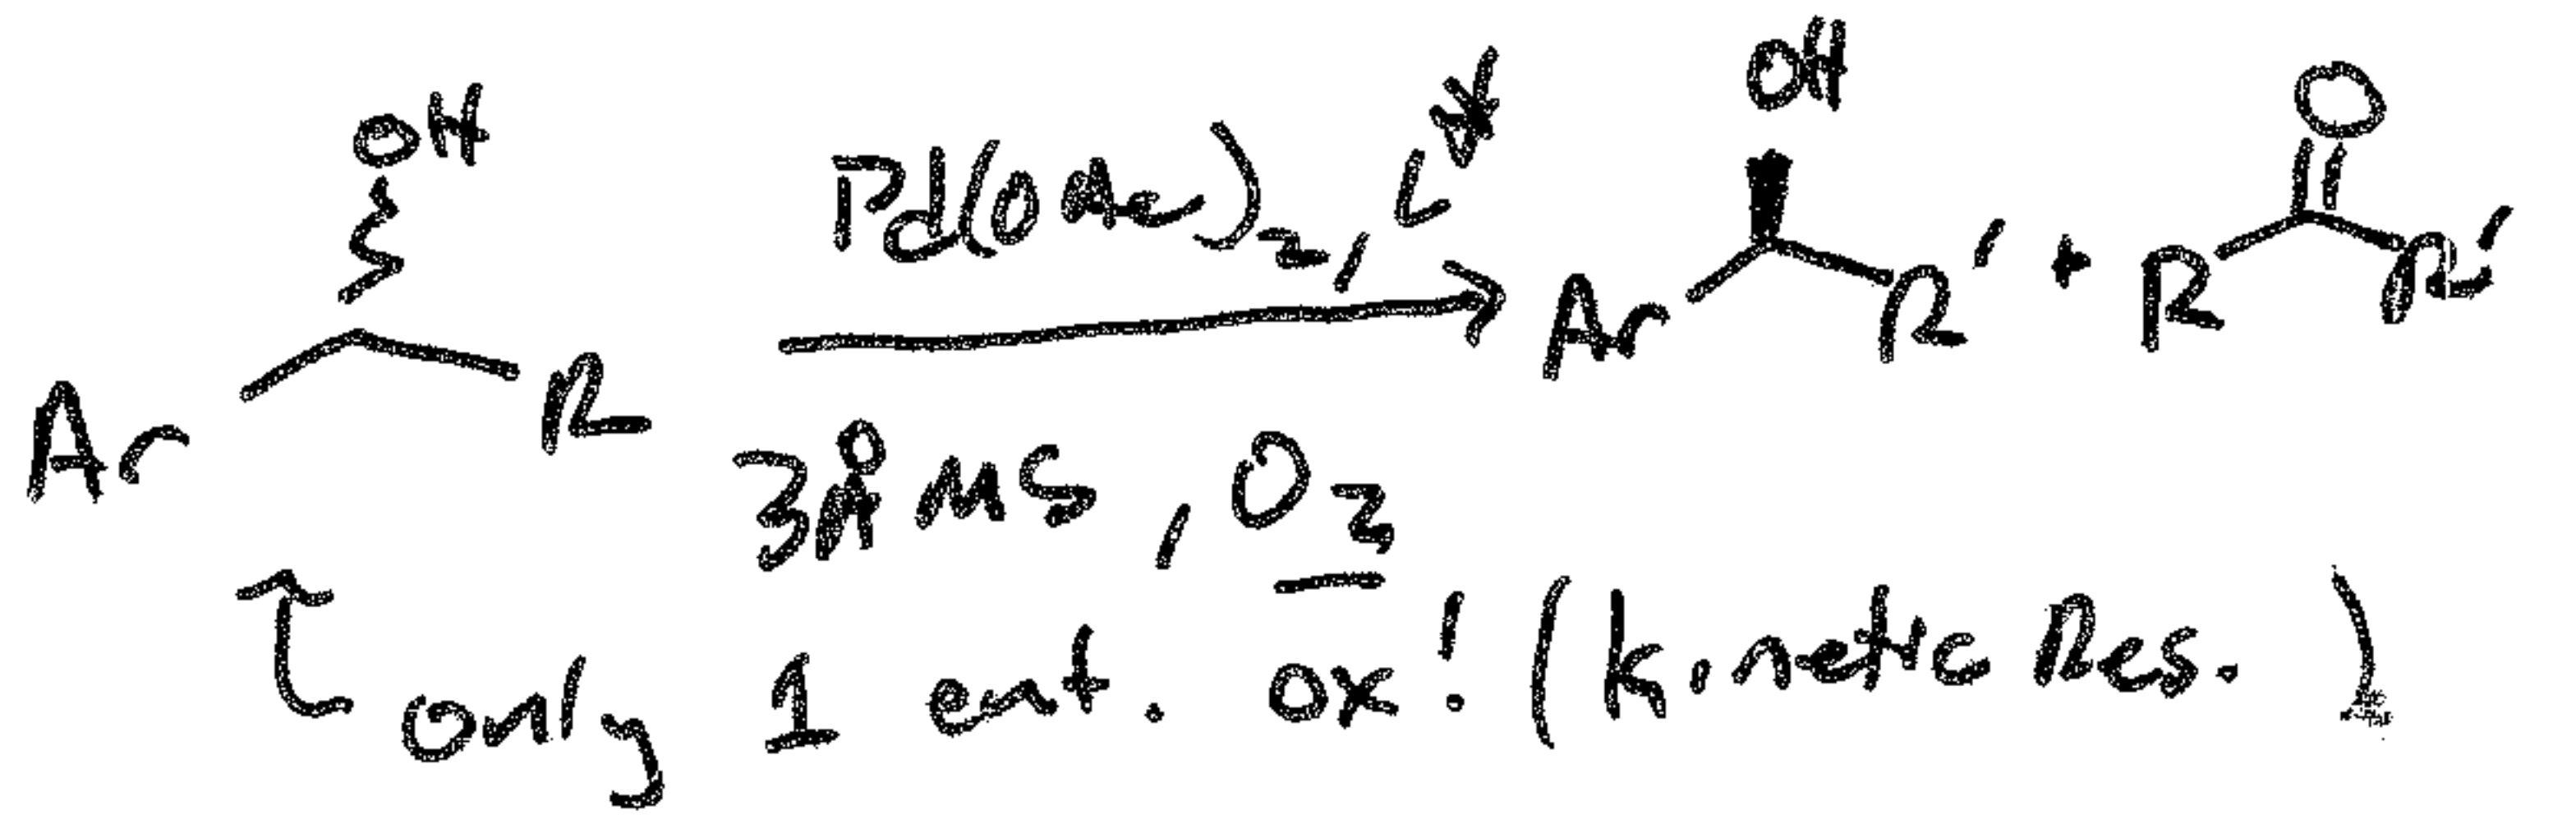 OH
Ar R
Pd(OAc)2, L*
3Å MS, O2
OH
Ar R'
+
O
R R'
only 1 ent. ox! (kinetic Res.)